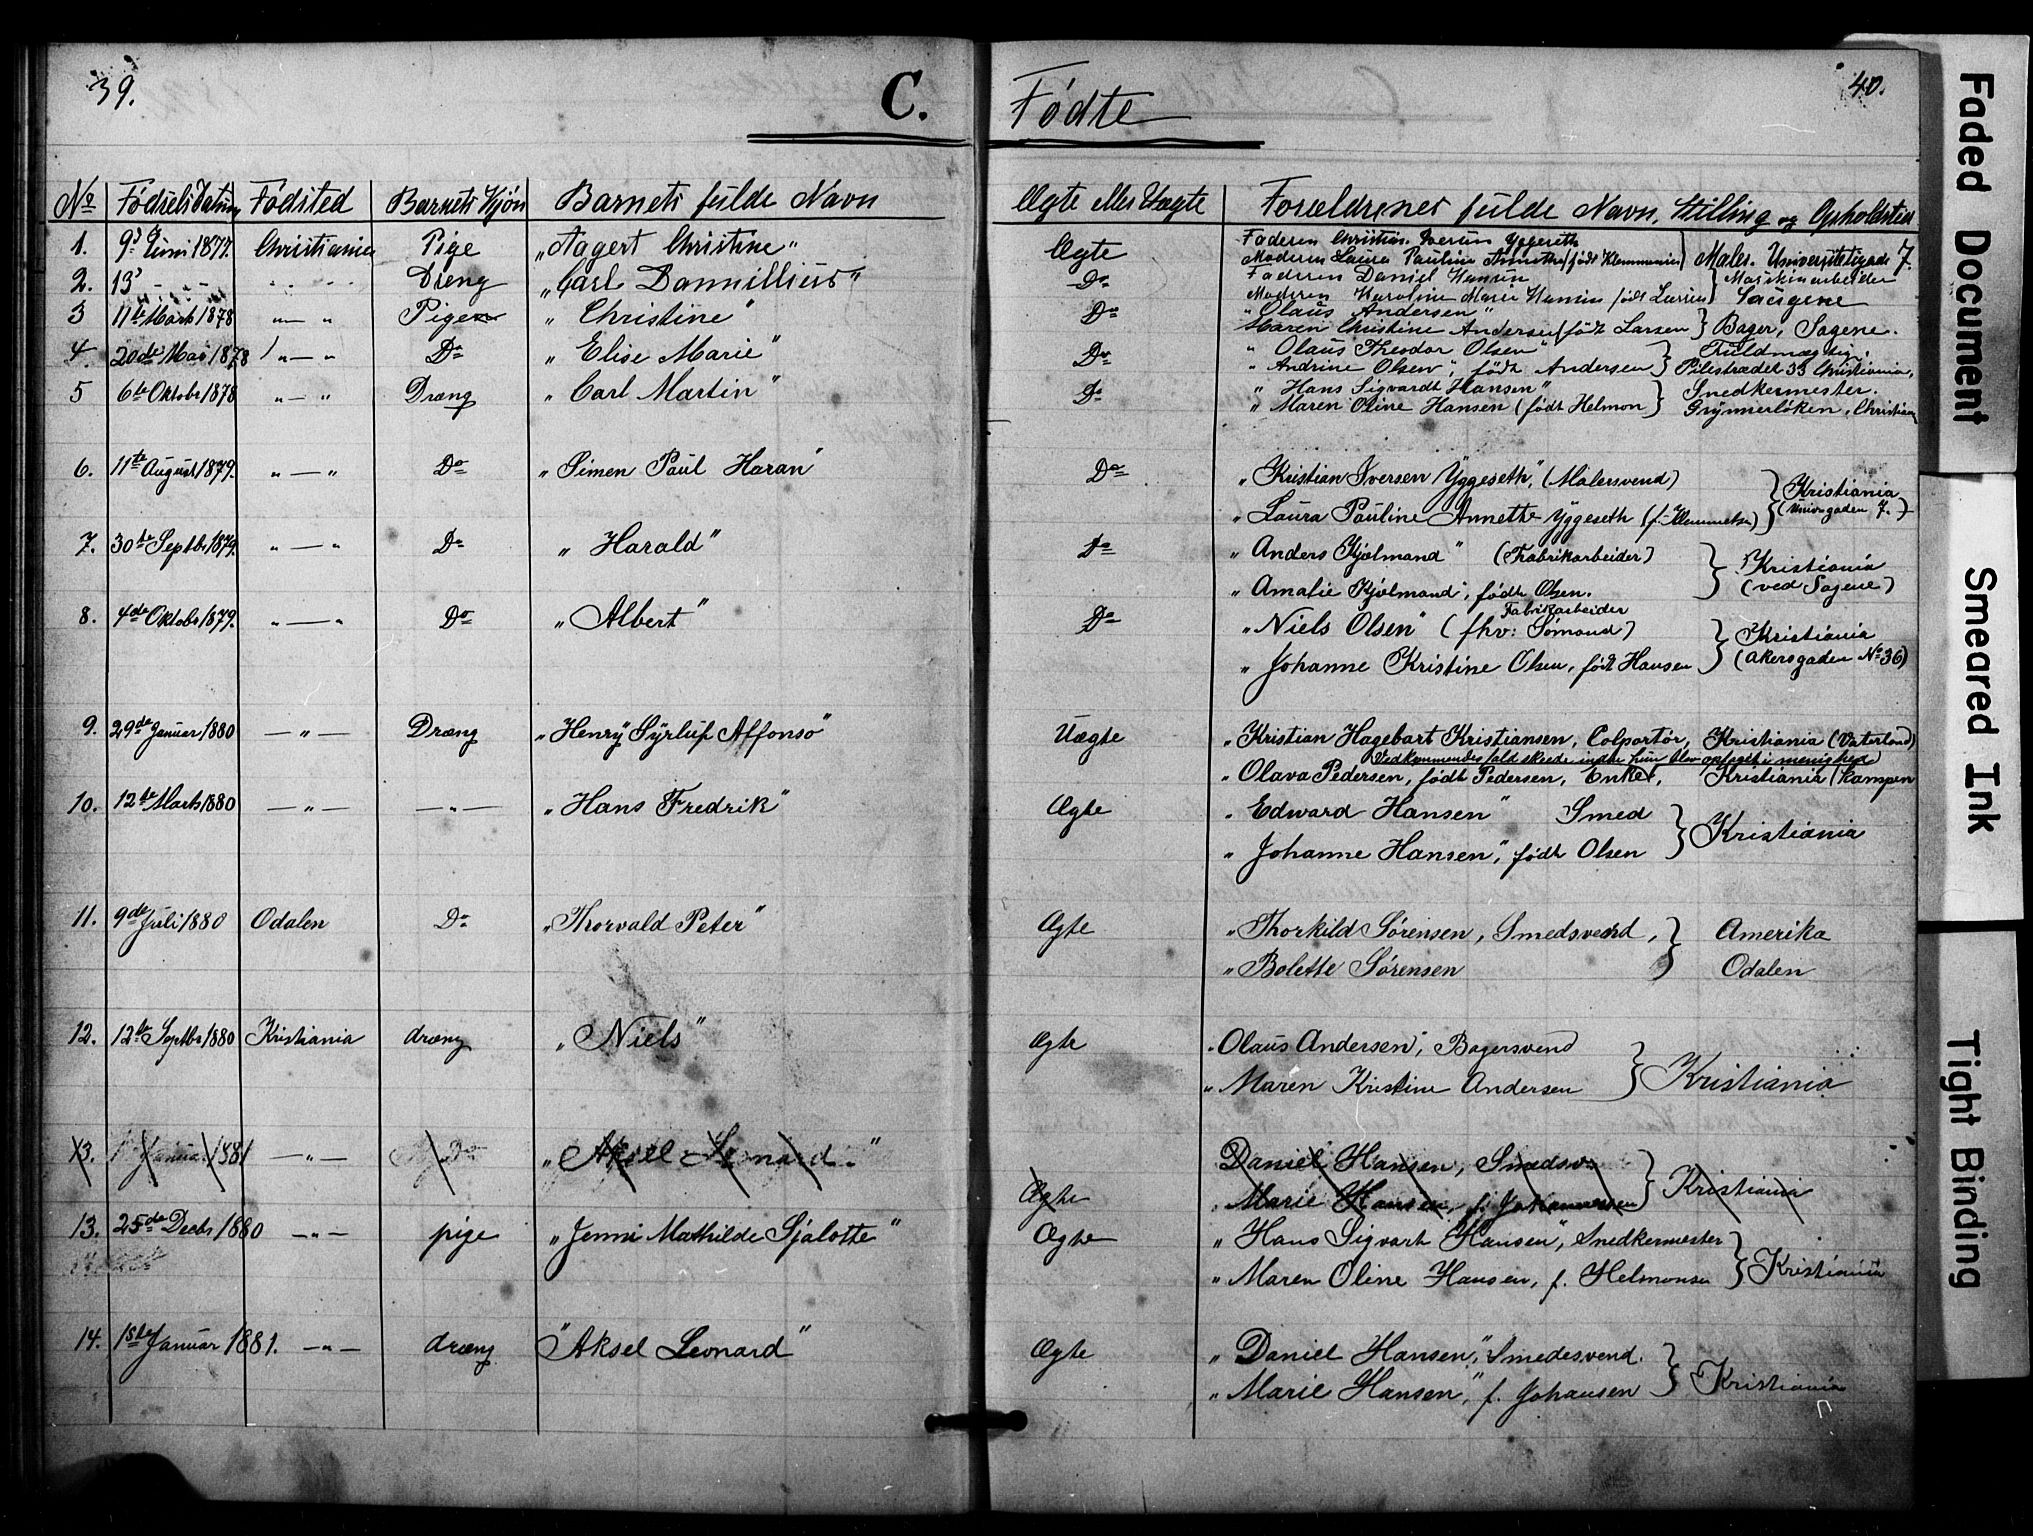 39.
C. Fødte
40.
No Fødsels Datum Fødsted Barnets Kjøn Barnets fulde Navn Ægte eller Uægte Forældrenes fulde Navn, Stilling og Opholdsted
1. 9d Juni 1877. Christiania Pige „Aagert Christine" Ægte Faderen Christian Iversen Yggeseth
Moderen Laura Pauline Annette (født Klemmensen) Maler. Universitetsgade 7.
2. 13d - - - Dreng „Carl Dannillius" Do Faderen Daniel Hansen Maskinarbeider
Moderen Karoline Marie Hansen født Larsen Saugene
3 11te Marts 1878 „ — „ Pige „ Christine" Do „Olaus Andersen"
Maren Christine Andersen (født Larsen Bager, Sagene.
4. 20de Mai 1878 „ — „ Do „ Elise Marie" Do „ Olaus Theodor Olsen" Fuldmægtig.
„ Andrine Olsen", født Andersen Pilestrædet 33 Christiania.
5 6te Oktobr 1878 „ — „ Dræng „ Carl Martin" Do „ Hans Sigvardt Hansen" Snedkermester.
„ Maren Oline Hansen (født Helmon Grynnerløken, Christian
6. 11te August 1879. „ — „ Do „Simen Paul Haran" Do „Kristian Iversen Yggeseth", (Malersvend)
„Laura Pauline Annette Yggeseth (f. Klemmetsen) Kristiania (Univ.gaden 7.)
7. 30te Septbr 1879. „ — „ Do „ Harald" Do „ Anders Kjølmand" (Fabrikarbeider)
„ Amalie Kjølmand", født Olsen. Kristiania (ved Sagene)
8. 4de Oktobr 1879. „ — „ Do „Albert" Do „Niels Olsen" (fhv: Sømand) Fabrikarbeider
„ Johanne Kristine Olsen, født Hansen Kristiania (Akersgaden No 36)
9. 29de Januar 1880 — „ — Dræng „Henry Syrluf Alfonso" Uægte „Kristian Hagebart Kristiansen, Colportør, Kristiania (Vaterland)
Vedkommendes fald skeede indtil hun blev optaget i menighed
„ Olava Pedersen, født Pedersen, Enke, Kristiania (Kampen
10. 12te Marts 1880 — „ — — „ — „Hans Fredrik" Ægte „ Edward Hansen" Smed
„ Johanne Hansen", født Olsen Kristiania
11. 9de Juli 1880 Odalen Do „Thorvald Peter" Ægte „Thorkild Sørensen, Smedsvend, Amerika
„Bolette Sørensen Odalen
12. 12te Septbr 1880 Kristiania dræng „Niels" Ægte „Olaus Andersen", Bagersvend
„ Maren Kristine Andersen Kristiania
13. 1 Januar 1881 — „ — Do „Aksel Leonard." Ægte Daniel Hansen, Smedsv.
„ Marie Hansen, f. Johannesen Kristiania
13. 25de Decbr 1880 — „ — pige „Jenni Mathilde Sjalotte" Ægte „ Hans Sigvart Hansen", Snedkermester
„ Maren Oline Hansen, f. Helmonsen Kristiania
14. 1ste Januar 1881. — „ — dræng „Aksel Leonard" Ægte „ Daniel Hansen", Smedesvend.
„ Marie Hansen", f. Johansen Kristiania
Faded Document
Smeared Ink
Tight Binding